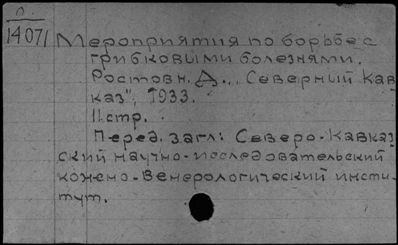 Л.
14071
Мероприятия по борьбе с
грибковыми болезнями.
Ростов н. Д., „Северный Кав
каз", 1933.
11 стр.
Перед. загл: Северо-Кавказ
ский научно-исследовательский
кожено-венерологический инсти-
тут.